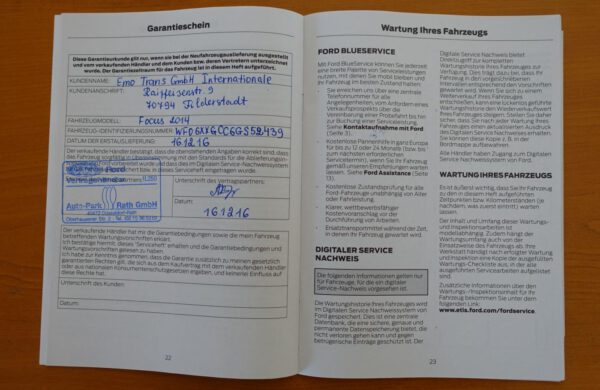 Garantieschein
Diese Garantieurkunde gilt nur, wenn sie bei der Neufahrzeugauslieferung ausgestellt
und vom verkaufenden Händler und dem Kunden bzw. deren Vertretern unterzeichnet
wurde. Der Garantiezeitraum für das Fahrzeug ist in diesem Heft aufgeführt.
KUNDENNAME: Emo Trans GmbH Internationale
KUNDENANSCHRIFT: Raiffeisenstr 9
70794 Filderstadt
FAHRZEUGMODELL: Focus 2014
FAHRZEUG-IDENTIFIZIERUNGSNUMMER
DATUM DER ERSTAUSLIEFERUNG: 16.12.16
Der verkaufende Händler bestätigt, dass die obenstehenden Angaben korrekt sind, dass
die Fahrzeug sorgfältig in Übereinstimmung mit den Standards für die Ablieferungsin-
vorbereitet wurde und dass dies im Digitalen Service-Nachweissystem
bzw. in diesem Serviceheft eingetragen wurde.
Ford
Vertragshändler
Auto-Park Rath GmbH
40472 Düsseldorf-Rath
Unterschrift des Vertragspartners:
Datum:
16.12.16
Der verkaufende Händler hat mir die Garantiebedingungen sowie die mein Fahrzeug
betreffenden Wartungsvorschriften erklärt.
Ich bestätige hiermit, dieses 'Serviceheft' erhalten und die Garantiebedingungen und
Wartungsvorschriften gelesen zu haben.
Ich habe zur Kenntnis genommen, dass die Garantie zusätzlich zu meinen gesetzlich
garantierten Rechten gilt, die sich aus dem Kaufvertrag mit dem verkaufenden Händler
oder aus nationalen Konsumentenschutzgesetzen ergeben, und keinerlei Einfluss auf
diese Rechte hat.
Unterschrift des Kunden:
Datum:
22
Wartung Ihres Fahrzeugs
FORD BLUESERVICE
Mit Ford BlueService können Sie jederzeit
eine breite Palette von Serviceleistungen
nutzen, mit denen Sie mobil bleiben und
Ihr Fahrzeug im besten Zustand halten.
Sie erreichen uns über eine zentrale
Telefonnummer für alle
Angelegenheiten, vom Anfordern eines
Verkaufsprospekts über die
Vereinbarung einer Probefahrt bis hin
zur Buchung einer Servicewartung.
Siehe Kontaktaufnahme mit Ford
(Seite 3).
Kostenlose Pannenhilfe in ganz Europa
für bis zu 12 oder 24 Monate (bzw. bis
zum nächsten vorgeschriebenen
Servicetermin), wenn Sie Ihr Fahrzeug
gemäß unseren Empfehlungen warten
lassen. Siehe Ford Assistance (Seite
13).
Kostenlose Zustandsprüfung für alle
Ford-Fahrzeuge unabhängig von Alter
oder Fahrleistung.
Klarer, wettbewerbsfähiger
Kostenvoranschlag vor der
Durchführung von Arbeiten.
Ersatztransportmittel während der Zeit,
in denen Ihr Fahrzeug gewartet wird.
DIGITALER SERVICE
NACHWEIS
Die folgenden Informationen gelten nur
für Fahrzeuge, für die ein digitaler
Service-Nachweis vorgesehen ist.
Die Wartungshistorie Ihres Fahrzeugs wird
im Digitalen Service-Nachweissystem von
Ford gespeichert. Dies ist eine zentrale
Datenbank, die eine sichere, genaue und
permanente Datenspeicherung bietet, die
nicht verloren gehen kann und gegen
betrügerische Einträge geschützt ist. Der
Digitale Service-Nachweis bietet
Direktzugriff zur kompletten
Wartungshistorie Ihres Fahrzeugs zur
Verfügung. Dies trägt dazu bei, dass Ihr
Fahrzeug in den vorgeschriebenen
Wartungsintervallen entsprechend gewartet
wird. Wenn Sie sich zu einem
Weiterverkauf Ihres Fahrzeugs
entschließen, kann eine lückenlos geführte
Wartungshistorie den Wiederverkaufswert
Ihres Fahrzeugs steigern. Stellen Sie daher
sicher, dass Sie nach jeder Wartung Ihres
Fahrzeugs einen aktualisierten Ausdruck
des Digitalen Service-Nachweises erhalten.
Sie können diese Kopie z. B. in der
Bordmappe aufbewahren.
Alle Händler haben Zugang zum Digitalen
Service-Nachweissystem von Ford.
WARTUNG IHRES FAHRZEUGS
Es ist äußerst wichtig, dass Sie Ihr Fahrzeug
zu den in diesem Heft aufgeführten
Zeitpunkten bzw. Kilometerständen (je
nachdem, was zuerst eintritt) warten
lassen.
Der Inhalt und Umfang dieser Wartungs-
und Inspektionsarbeiten ist
modellabhängig. Zudem hängt der
Wartungsumfang auch von der
Einsatzweise des Fahrzeugs ab. Ihre
Werkstatt händigt nach erfolgter Wartung
und Inspektion eine Kopie der ausgefüllten
Wartungs-Checkliste aus, in der alle
ausgeführten Servicearbeiten aufgelistet
sind.
Zusätzliche Informationen über den
Wartungs-/Inspektionsinhalt für Ihr
Fahrzeug bekommen Sie unter dem
folgenden Link:
www.etis.ford.com/fordservice.
23